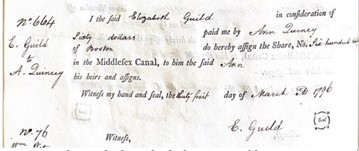 No. 664 I the said Elizabeth Guild in consideration of
Sixty dollars paid me by Ann Quincy
E. Guild of Boston do hereby assign the Share, No. Six hundred
to in the Middlesex Canal, to him the said Ann
A. Quincy his heirs and assigns.
Witness my hand and seal, the thirty first day of March AD 1796
E. Guild Seal
No. 76 Witness,